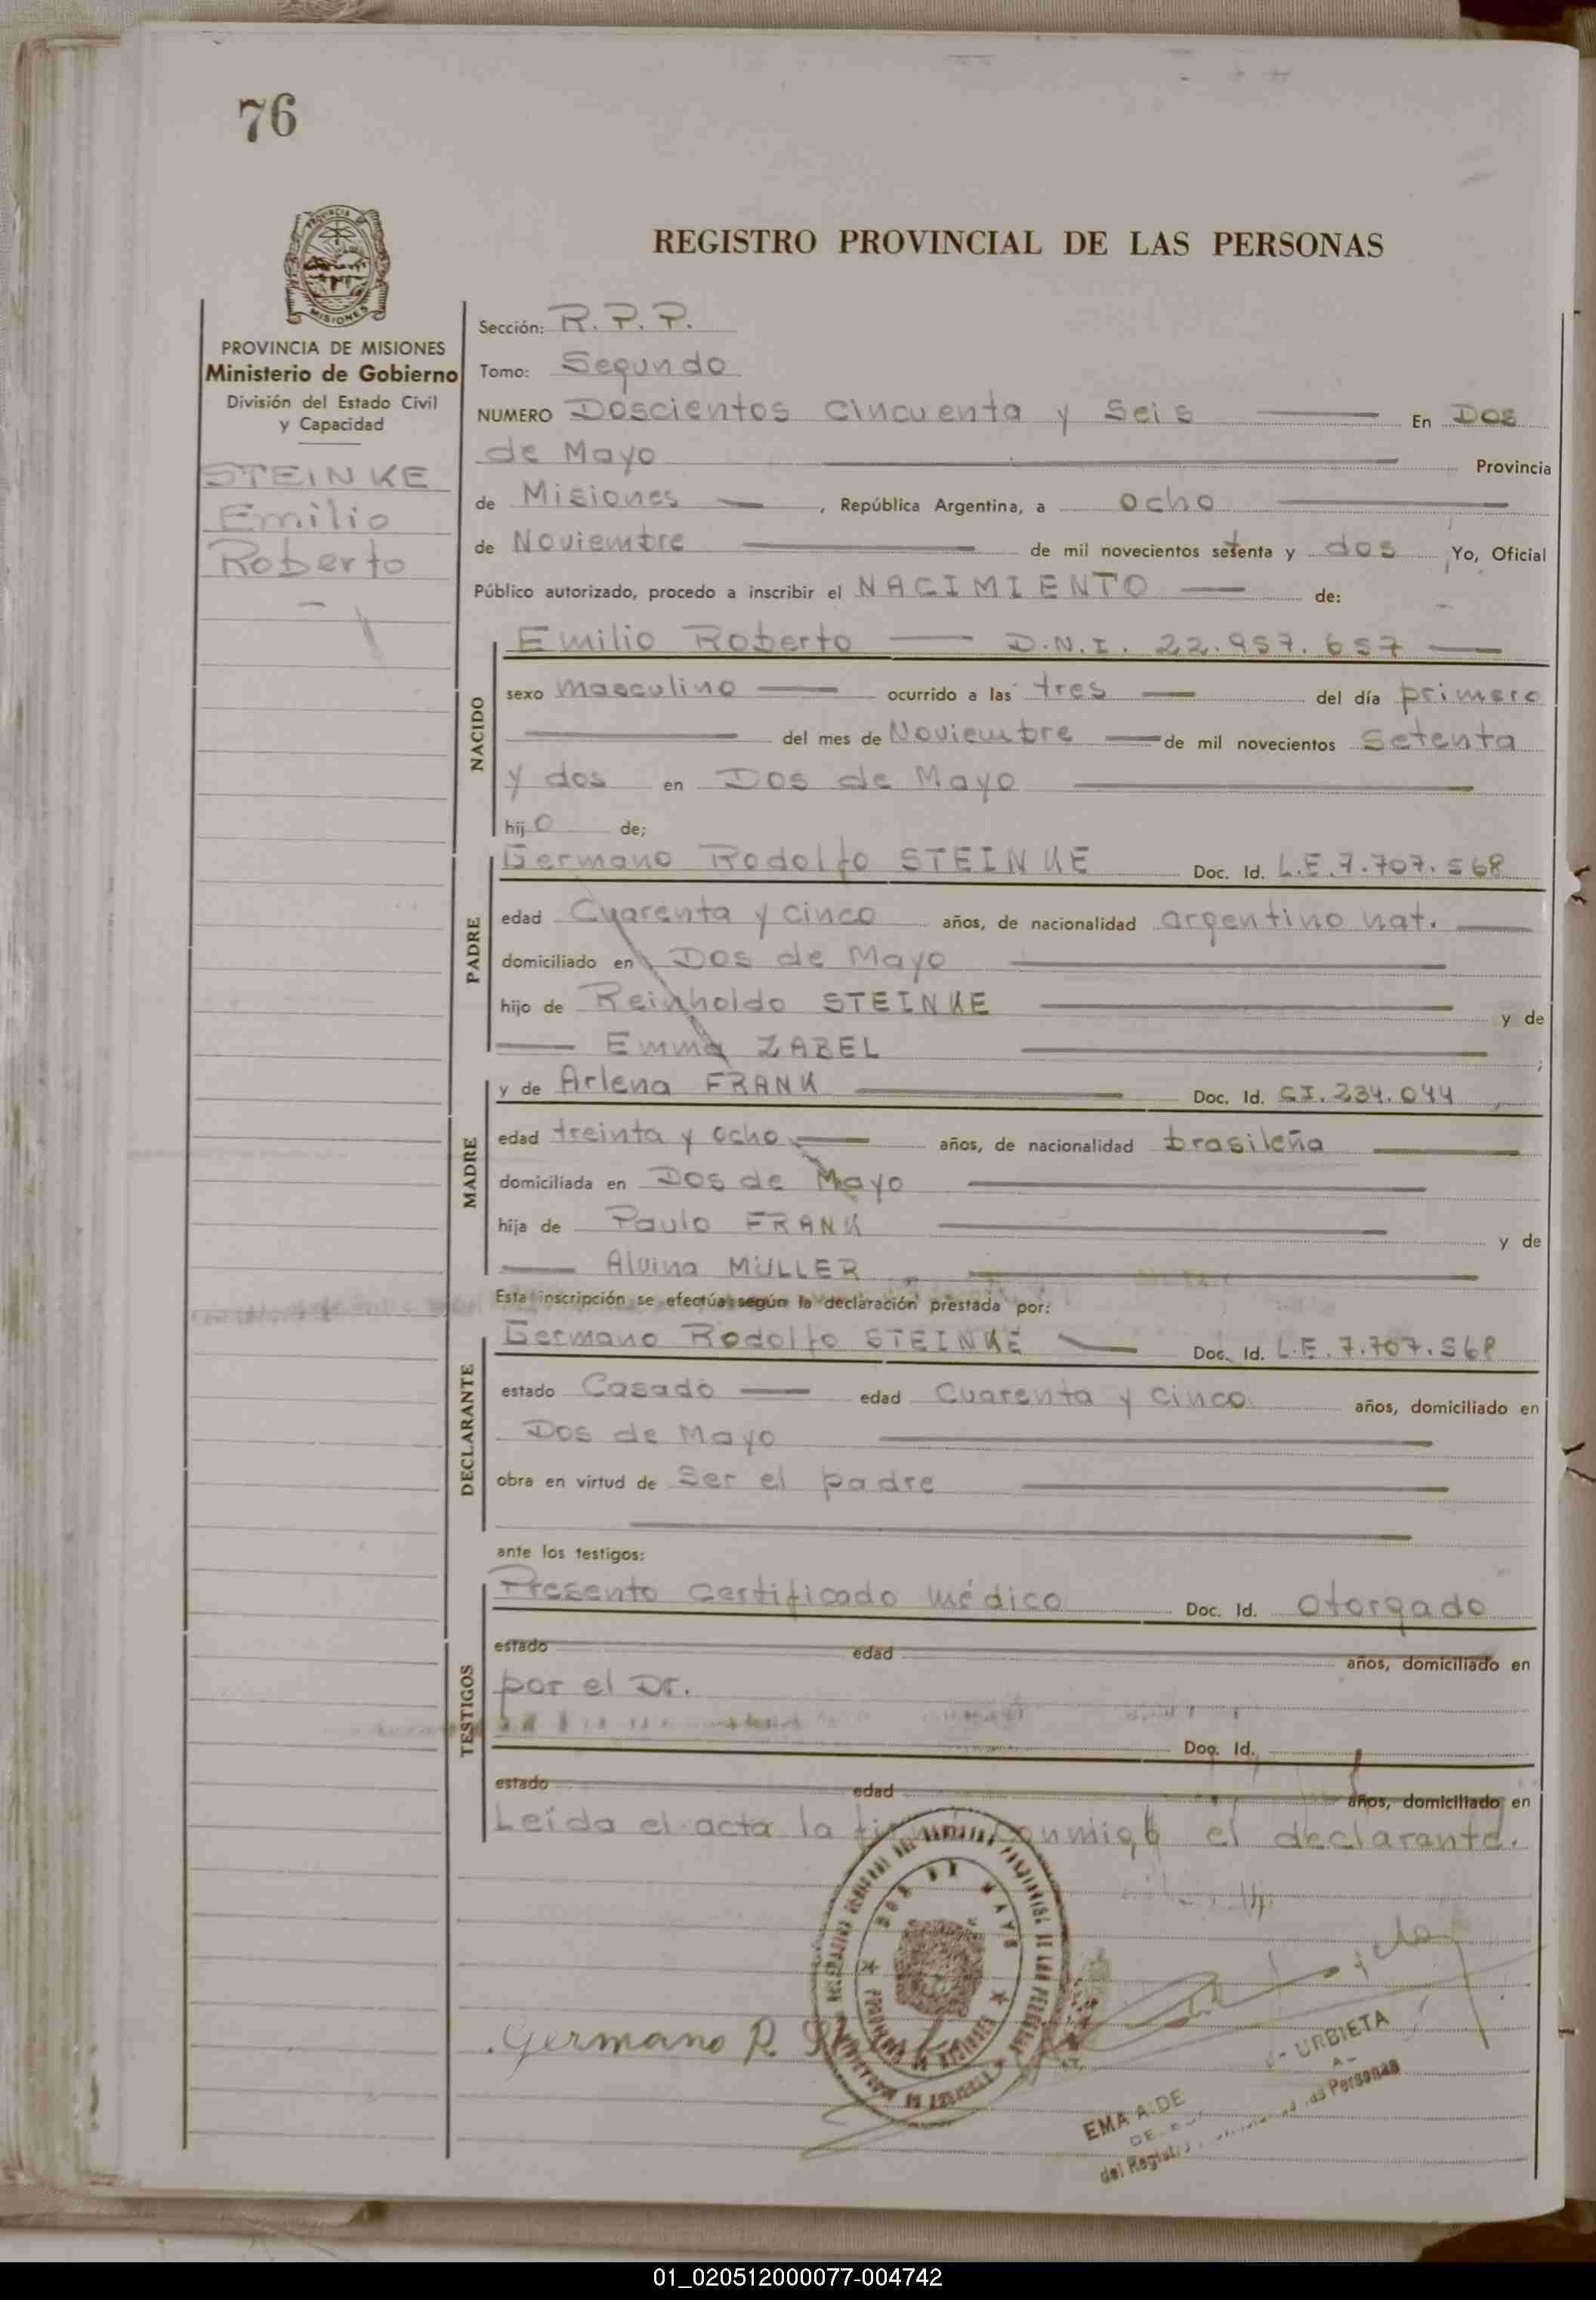 76
PROVINCIA DE MISIONES
REGISTRO PROVINCIAL DE LAS PERSONAS
PROVINCIA DE MISIONES
Ministerio de Gobierno
División del Estado Civil
y Capacidad
STEINKE
Emilio
Roberto
Sección: R.P.P.
Tomo: Segundo
NUMERO Doscientos cincuenta y seis En Dos
de Mayo Provincia
de Misiones , República Argentina, a ocho
de Noviembre de mil novecientos setenta y dos Yo, Oficial
Público autorizado, procedo a inscribir el NACIMIENTO de:
NACIDO
Emilio Roberto D.N.I. 22.957.657
sexo masculino ocurrido a las tres del día primero
del mes de Noviembre de mil novecientos setenta
y dos en Dos de Mayo
hijo de;
PADRE
Germano Rodolfo STEINKE Doc. Id. L.E.7.707.568
edad Cuarenta y cinco años, de nacionalidad argentino nat.
domiciliado en Dos de Mayo
hijo de Reinholdo STEINKE y de
Emma ZABEL ;
MADRE
y de Arlena FRANK Doc. Id. CI.234.044
edad treinta y ocho años, de nacionalidad brasileña
domiciliada en Dos de Mayo
hija de Paulo FRANK y de
Alvina MULLER
Esta inscripción se efectúa según la declaración prestada por:
DECLARANTE
Germano Rodolfo STEINKE Doc. Id. L.E.7.707.568
estado Casado edad Cuarenta y cinco años, domiciliado en
Dos de Mayo
obra en virtud de ser el padre
ante los testigos:
TESTIGOS
Presento certificado médico Doc. Id. otorgado
estado edad años, domiciliado en
por el Dr.
Doc. Id.
estado edad años, domiciliado en
Leída el acta la firma conmigo el declarante.
DOS DE MAYO
Germano R.
URBIETA
EMA AIDE
del Registro las Personas
01_020512000077-004742